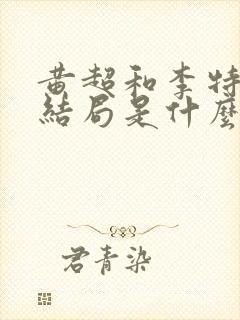 黄超和李特
結局是什麼
君青染